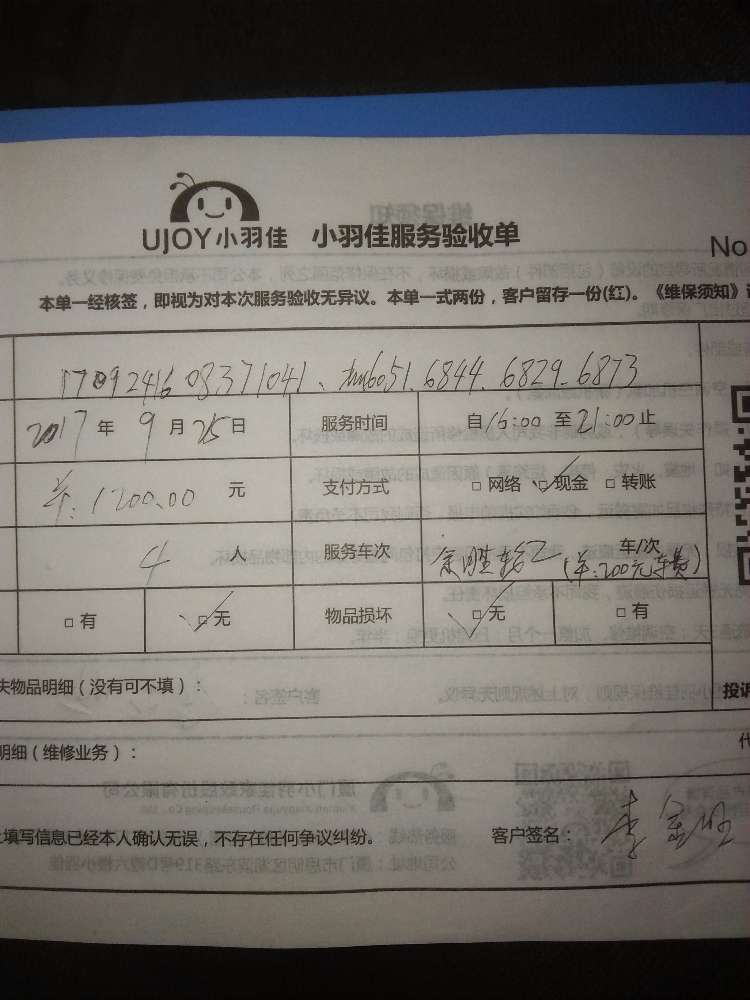 UJOY小羽佳 小羽佳服务验收单
No
本单一经核签，即视为对本次服务验收无异议。本单一式两份，客户留存一份(红)。《维保须知》
1709241608371041、 6051.6844.6829.6873
2017年9月25日 服务时间 自16:00至21:00止
羊:1200.00元 支付方式 □网络 □现金 □转账
4人 服务车次 车/次 (羊:200元车费)
□有 □无 物品损坏 □无 □有
失物品明细（没有可不填）： 投诉
明细（维修业务）：
填写信息已经本人确认无误，不存在任何争议纠纷。 客户签名： 李